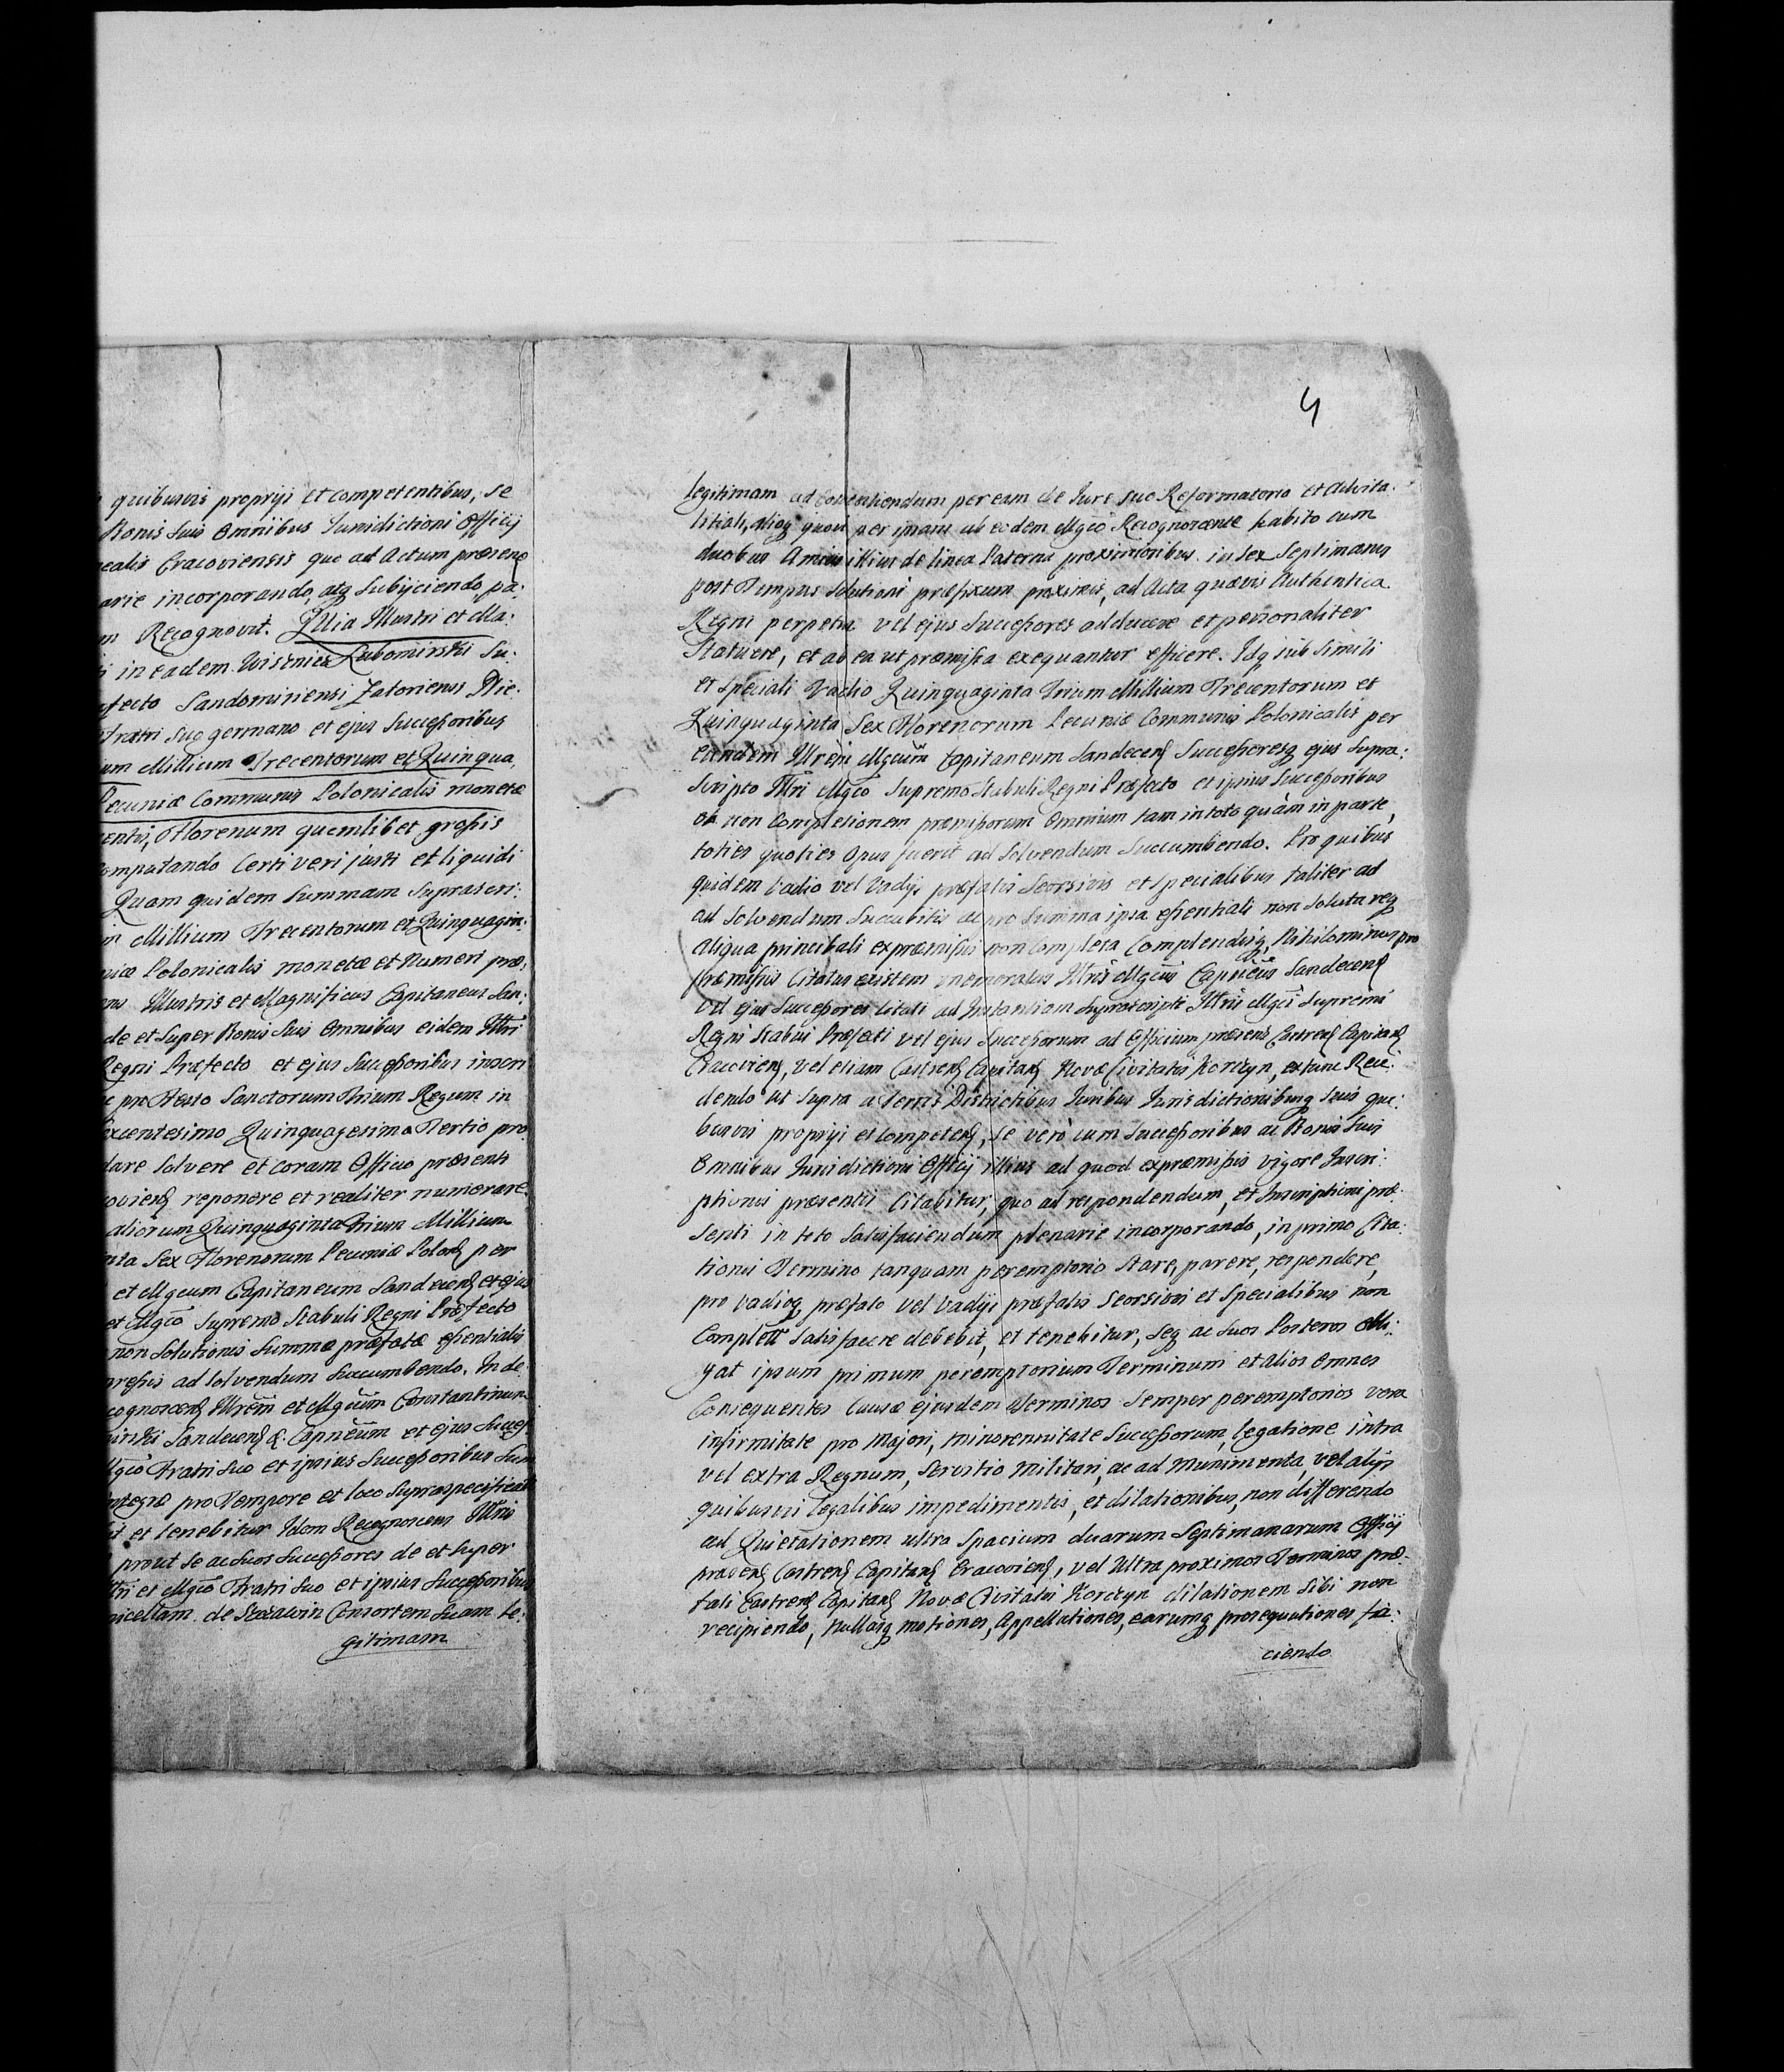 quibusvis proprijs et competentibus, se
Bonis suis Omnibus Jurisdictioni Officij
Cracoviensis quo ad Actum præsens
incorporando, atq subijciendo, pa:
Recognovit. Quia Illustri et Ma:
in eadem Wisnicz Lubomirski Su:
Sandomiriensi Zatoriensi Nie:
Fratri suo germano et ejus Successoribus
Millium Trecentorum et Quinqua
Pecuniæ Communis Polonicalis monetæ
Florenum quemlibet grossis
Computando Certi veri justi et liquidi
Quam quidem Summam suprascri:
Millium Trecentorum et Quinquagin:
Polonicalis monetæ et Numeri præ:
Illustris et Magnificus Capitaneus San:
de et super Bonis Suis Omnibus eidem Illtri
Regni Præfecto et ejus Successoribus inscri
pro Festo Sanctorum Trium Regum in
Quinquagesimo Tertio pro
dare solvere et coram Officio præsenti
reponere et realiter numerare
aliorum Quinquaginta Trium Millium
Sex Florenorum Pecuniæ Polon per
et Mgcum Capitaneum Sandecen et ejus
et Mgco Supremo Stabuli Regni Præfecto
non Solutionis Summæ præfatæ essentialis
ad solvendum succumbendo. In de
Illrem et Mgcum Constantinum
Sandecen & Capneum et ejus Succes
Mgco Fratri suo et ipsius Successoribus Sum
pro Tempore et loco supraspecificat
et tenebitur Idem Recognoscens Illtris
prout se ac suos Successores de et super
et Mgco Fratri suo et ipsius Successoribus
de Consortem suam le:
gitimam
4
legitimam ad consentiendum per eam de Jure suo Reformatorio et Advita:
litiali, alioq quovis per ipsam ab eodem Mgco Recognoscente habito cum
duobus Amicis illius de linea Paterna proximioribus in sex Septimanis
post Tempus Solutioni præfixum proximis, ad Acta quævis Authentica
Regni perpetua vel ejus Successores adducere et personaliter
Statuere, et ab ea ut præmissa exequantur efficere. Idq sub simili
et speciali Vadio Quinquaginta Trium Millium Trecentorum et
Quinquaginta Sex Florenorum Pecuniæ Communis Polonicalis per
eundem Illrem Mgcum Capitaneum Sandecen Successoresq ejus Supra:
scripto Illtri Mgco Supremo Stabuli Regni Præfecto et ipsius Successoribus
ob non Completionem præmissorum Omnium tam in toto quàm in parte,
toties quoties Opus fuerit ad Solvendum Succumbendo. Pro quibus
quidem Vadio vel Vadijs præfatis Seorsivis et specialibus taliter ad
ad solvendum Succubitis ac pro Summa ipsa essentiali non soluta req
aliqua principali ex præmissis non Completa Complendisq, Nihilominus pro
præmissis Citatus existem memoratus Illtris Mgcus Capneus Sandecen
vel ejus Successores Citati ad Instantiam Suprascripti Illtris Mgci Supremi
Regni Stabuli Præfecti vel ejus Successorum ad Officium præsens Castren Capitan
Cracovien, vel etiam Castren Capitan Novæ Civitatis Korczyn, ex tunc Rece:
dendo ut supra a Terris Districtibus Juribus Jurisdictionibusq suis qui:
busvis proprijs et competen, se verò cum Successoribus ac Bonis Suis
Omnibus Jurisdictioni Officij illius ad quod ex præmissis vigore Inscri:
ptionis præsentis Citabitur, quo ad respondendum, et Inscriptioni præ:
senti in toto satisfaciendum plenarie incorporando, in primo Cita:
tionis Termino tanquam peremptorio Stare, parere, respondere,
pro Vadioq præfato vel Vadijs præfatis Seorsivis et Specialibus non
Complett satisfacere debebit, et tenebitur, seq ac suos Posteros obli:
gat ipsum primum peremptorium Terminum et alios Omnes
Consequentes Causæ ejusdem Terminos Semper peremptorios vera
infirmitate pro Majori, minorennitate Successorum, legatione intra
vel extra Regnum, Servitio Militari, ac ad Munimenta, vel alijs
quibusvis legalibus impedimentis, et dilationibus, non differendo
ad Quietationem ultra Spacium duarum Septimanarum Officij
præsen Castren Capitan Cracovien, vel Ultra proximos Terminos præ:
fati Castren Capitan Novæ Civitatis Korczyn dilationem Sibi non
recipiendo, Nullasq motiones, Appellationes, earumq prosequutiones fa:
ciendo